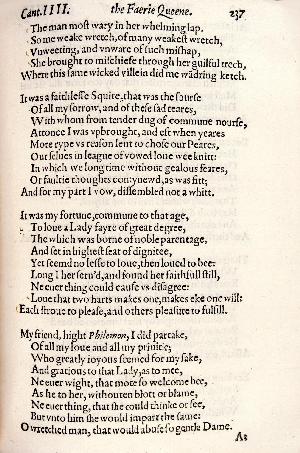 Cant. IIII. the Faerie Queene. 237
The man most wary in her whelming lap.
So me weake wretch, of many weakest wretch,
Vnweeting, and vnware of such mishap,
She brought to mischiefe through her guilful trech,
Where this same wicked villein did me wādring ketch.
It was a faithlesse Squire, that was the sourse
Of all my sorrow, and of these sad teares,
With whom from tender dug of commune nourse,
Attonce I was vpbrought, and eft when yeares
More rype vs reason lent to chose our Peares,
Our selues in league of vowed loue wee knitt:
In which we long time without gealous feares,
Or faultie thoughts contynewd, as was fitt;
And for my part I vow, dissembled not a whitt.
It was my fortune, commune to that age,
To loue a Lady fayre of great degree,
The which was borne of noble parentage,
And set in highest seat of dignitee,
Yet seemd no lesse to loue, then loued to bee:
Long I her seru'd, and found her faithfull still,
Ne euer thing could cause vs disagree:
Loue that two harts makes one, makes eke one will:
Each stroue to please, and others pleasure to fulfill.
My friend, hight Philemon, I did partake,
Of all my loue and all my priuitie;
Who greatly ioyous seemed for my sake,
And gratious to that Lady, as to mee,
Ne euer wight, that mote so welcome bee,
As he to her, withouten blott or blame,
Ne euer thing, that she could thinke or see,
But vnto him she would impart the same:
O wretched man, that would abuse so gentle Dame.